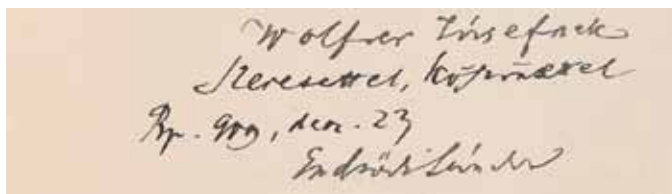 Wolfner Józsefnek
szeretettel, köszönettel
Bp. 909, dec. 23
Endrődi Sándor